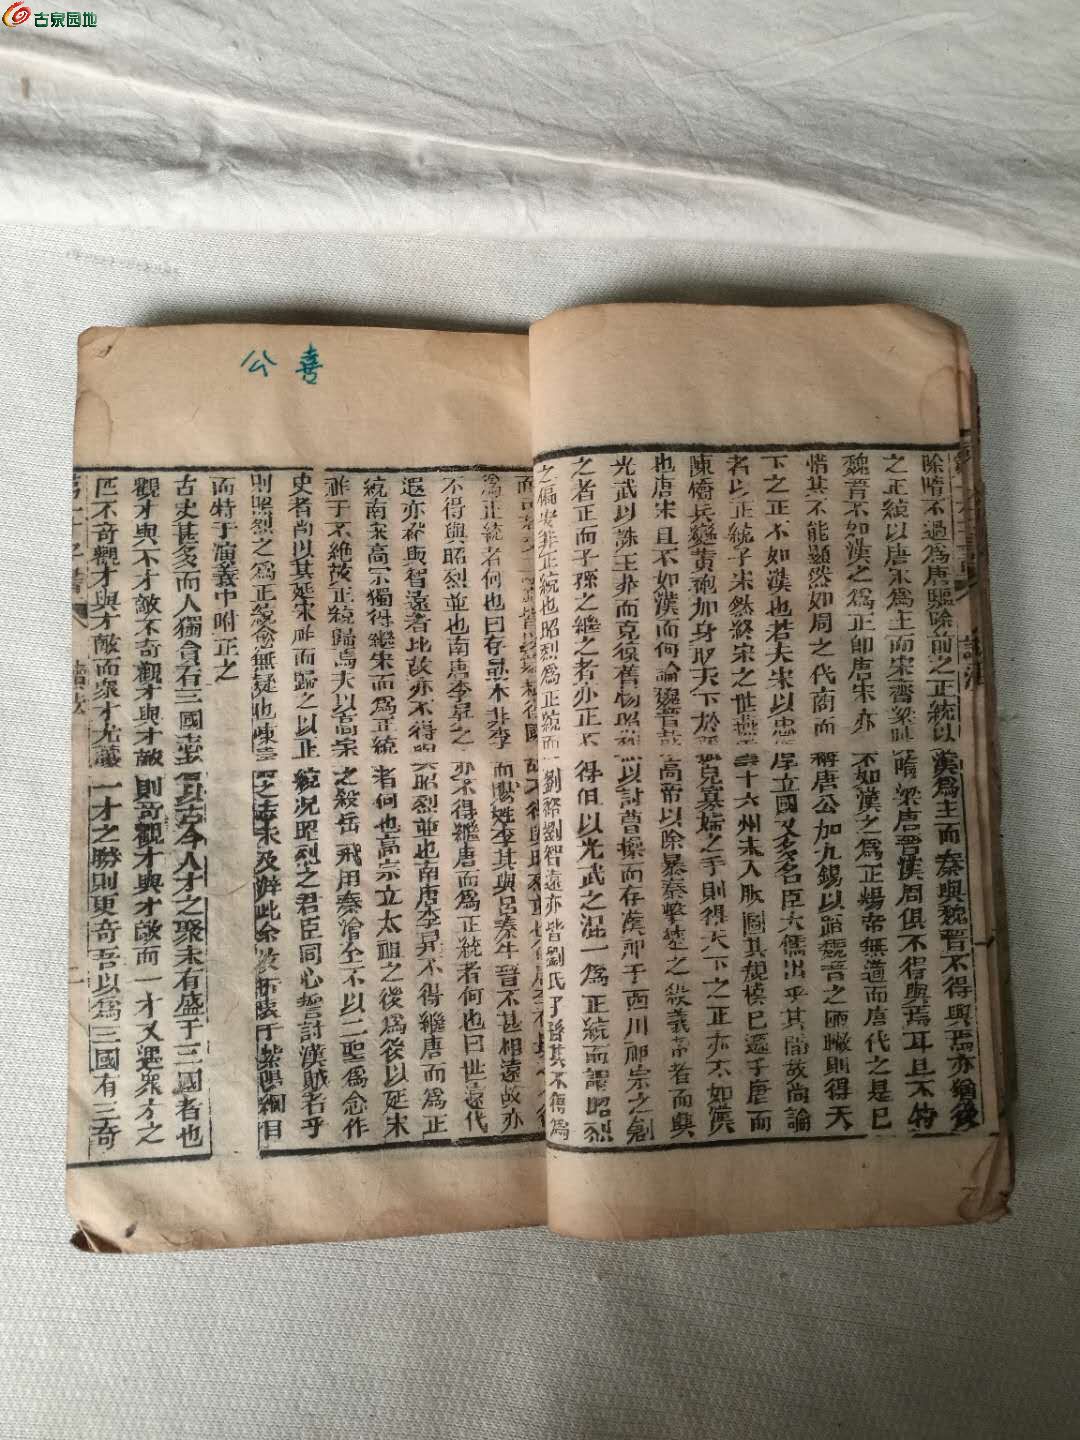 古泉园地
喜公
讀法
除隋不過為唐驅除前之正統以漢為主而秦與魏晉不得與焉亦猶後
之正統以唐宋為主而宋齊梁陳隋梁唐晉漢周俱不得與焉耳且不特
魏晉不如漢之為正即唐宋亦不如漢之為正煬帝無道而唐代之是已
惜其不能顯然如周之代商而稱唐公加九錫以蹈魏晉之陋轍則得天
下之正不如漢也若夫宋以忠厚立國又多名臣大儒出乎其間故尚論
者以正統予宋然終宋之世燕雲十六州未入版圖其規模已遜于唐而
陳橋兵變黃袍加身取天下於孤兒寡婦之手則得天下之正亦不如漢
也唐宋且不如漢而何論魏晉哉高帝以除暴秦擊楚之殺義帝者而興
光武以誅王莽而克復舊物昭烈以討曹操而存漢祀于西川祖宗之創
之者正而子孫之繼之者亦正不得但以光武之混一為正統而謂昭烈
之偏安非正統也昭烈為正統而劉智遠亦皆劉氏
為正統者何也曰存勗本非李而賜姓李其與呂秦牛晉不甚相遠故亦
不得與昭烈並也南唐李昪之亦不得繼唐而為正統者何也曰世遠代
遐亦裕與智遠者比故亦不得與昭烈並也南唐李昪不得繼唐而為正
統南宋高宗獨得繼宋而為正統者何也高宗立太祖之後為後以延宋
祚于不絕故正統歸焉夫以高宗之殺岳飛用秦檜全不以二聖為念作
史者尚以其延宋祚而歸之以正統況昭烈之君臣同心誓討漢賊者乎
則昭烈之為正統愈無疑也陳壽之志未及辨此余故折衷于紫陽綱目
而特于演義中附正之
古史甚多而人獨貪看三國志者以古今人才之聚未有盛于三國者也
觀才與不才敵不奇觀才與才敵則奇觀才與才敵而一才又遇眾才之
匹不奇觀才與才敵而眾才尤讓一才之勝則更奇吾以為三國有三奇
第一才子書
讀法